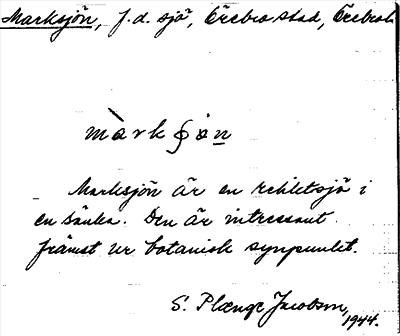 Marksjön, f.d. sjö, Örebro stad, Örebro l.
màrkʃön
Marksjön är en reliktsjö i
en sänka. Den är intressant
främst ur botanisk synpunkt.
S. Plænge Jacobson,
1944.